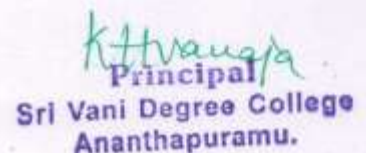 Principal
Sri Vani Degree College
Ananthapuramu.